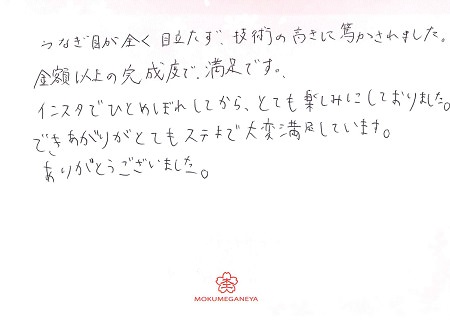 つなぎ目が全く目立たず、技術の高さに驚かされました。
金額以上の完成度で、満足です。
インスタでひとめぼれしてから、とても楽しみにしておりました。
できあがりがとてもステキで大変満足しています。
ありがとうございました。
MOKUMEGANEYA